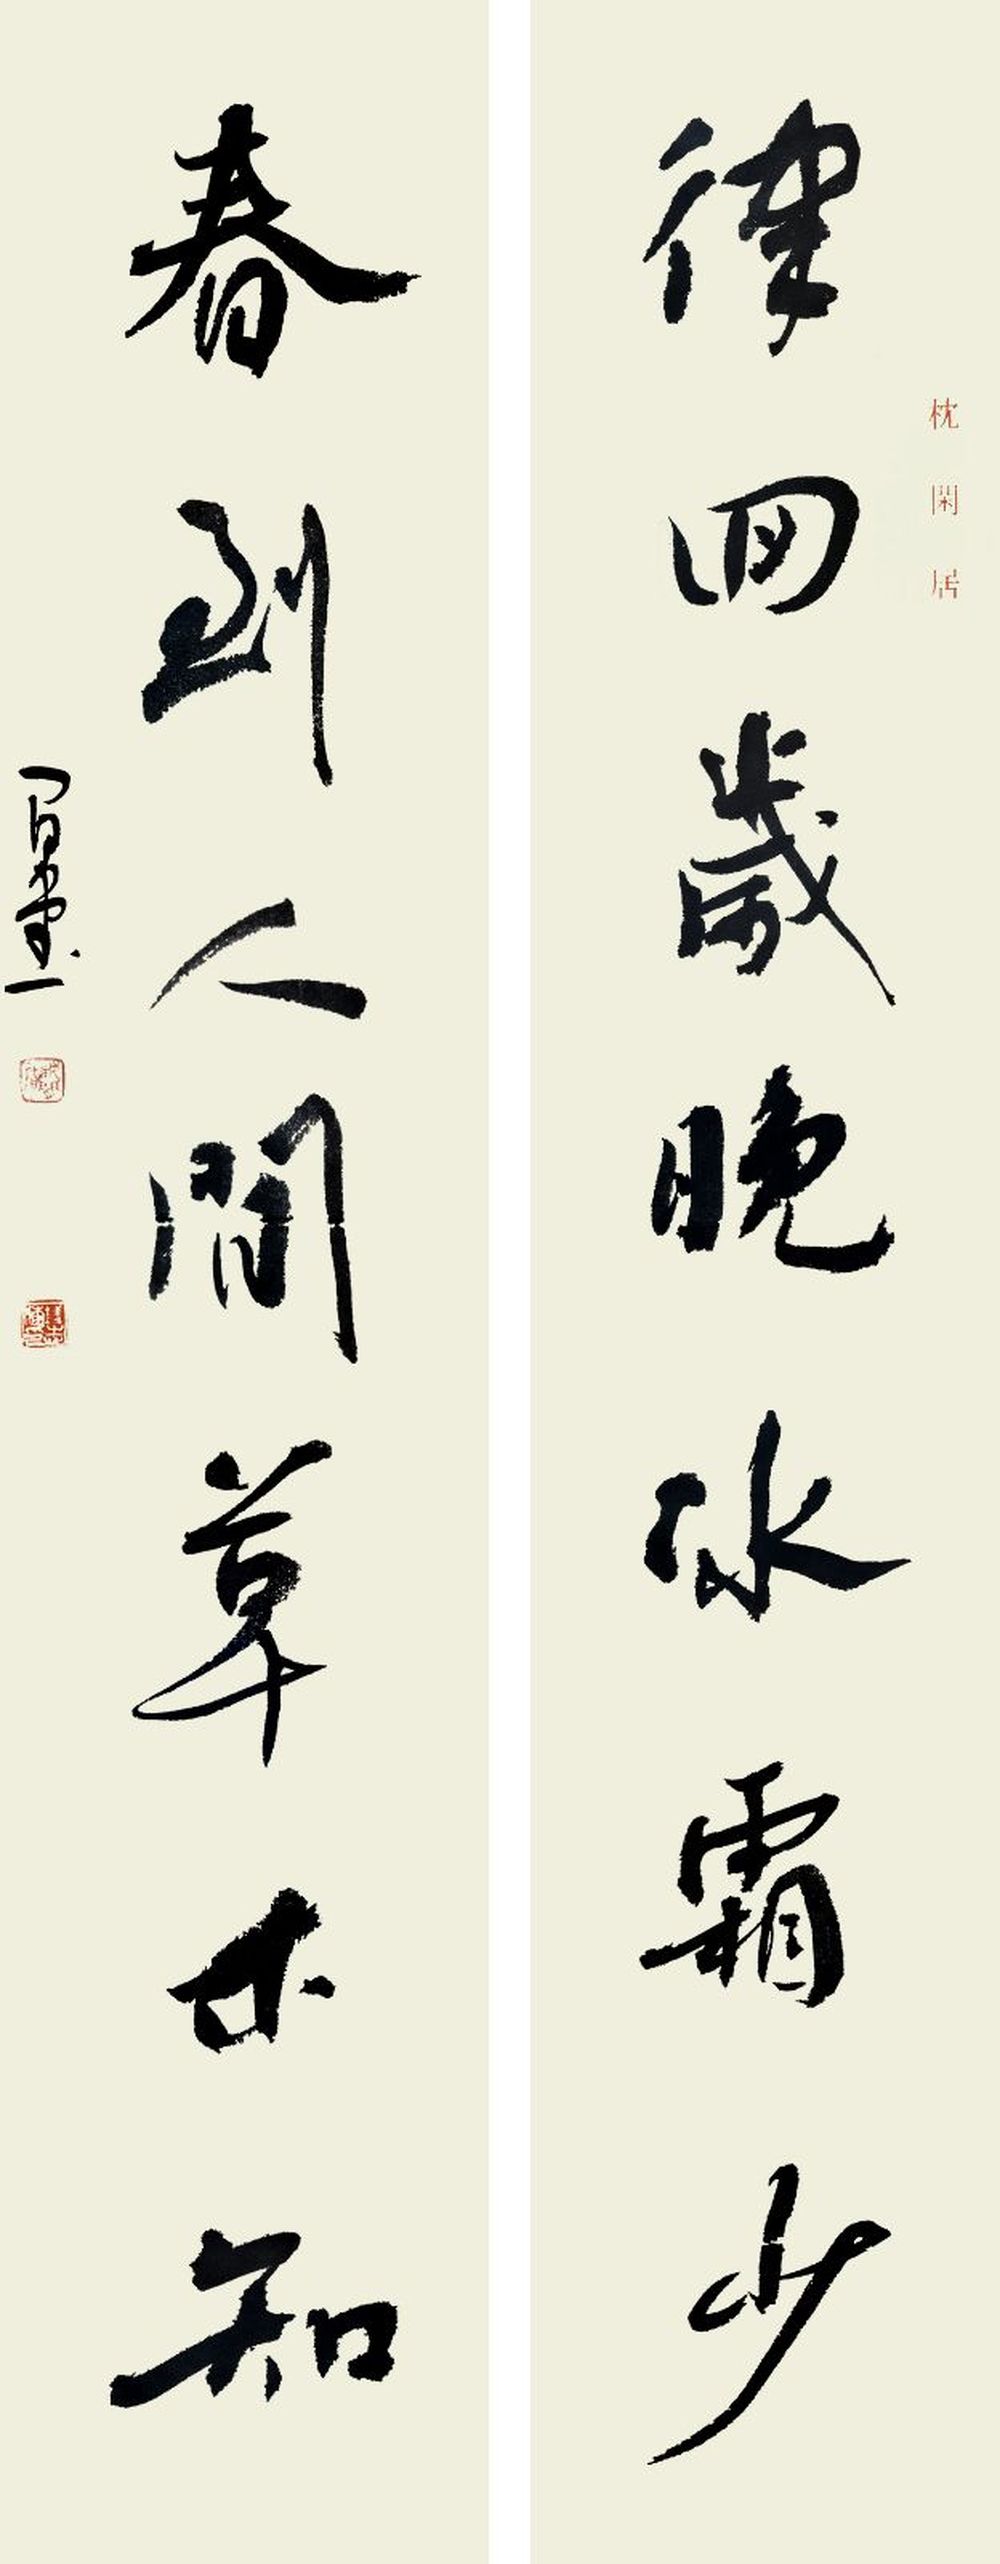 律回歲晚冰霜少
枕閑居
春到人間草木知